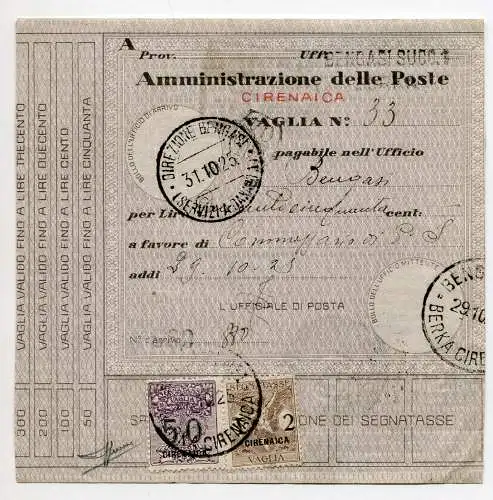 A
Prov. Uff. BENGASI SUCC. 1
Amministrazione delle Poste
CIRENAICA
VAGLIA Nº 33
pagabile nell'Ufficio
Bengasi
per Lire cent:
a favore di Commissario di P. S
addì 29. 10. 25
L'UFFICIALE DI POSTA
BOLLO DELL'UFFICIO DI ARRIVO
DIREZIONE BENGASI
31.10.25
BOLLO DELL'UFFICIO MITTENTE
BENGASI
29.10
BERKA CIRENAICA
VAGLIA VALIDO FINO A LIRE TRECENTO
VAGLIA VALIDO FINO A LIRE DUECENTO
VAGLIA VALIDO FINO A LIRE CENTO
VAGLIA VALIDO FINO A LIRE CINQUANTA
300
200
100
50
IONE DEI SEGNATASSE
50
CIRENAICA
SEGNATASSE
2
CIRENAICA
VAGLIA
CIRENAICA